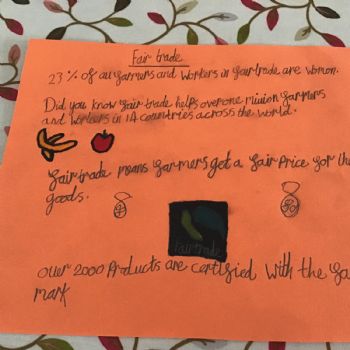 Fair trade
23% of all farmers and workers in fairtrade are womon.
Did you know fair trade helps over one miuion farmers
and workers in 14 countries across the world.
fairtrade means farmers get a fair Price for th
goods.
Fairtrade
Over 2000 Products are certified with the fa
mark